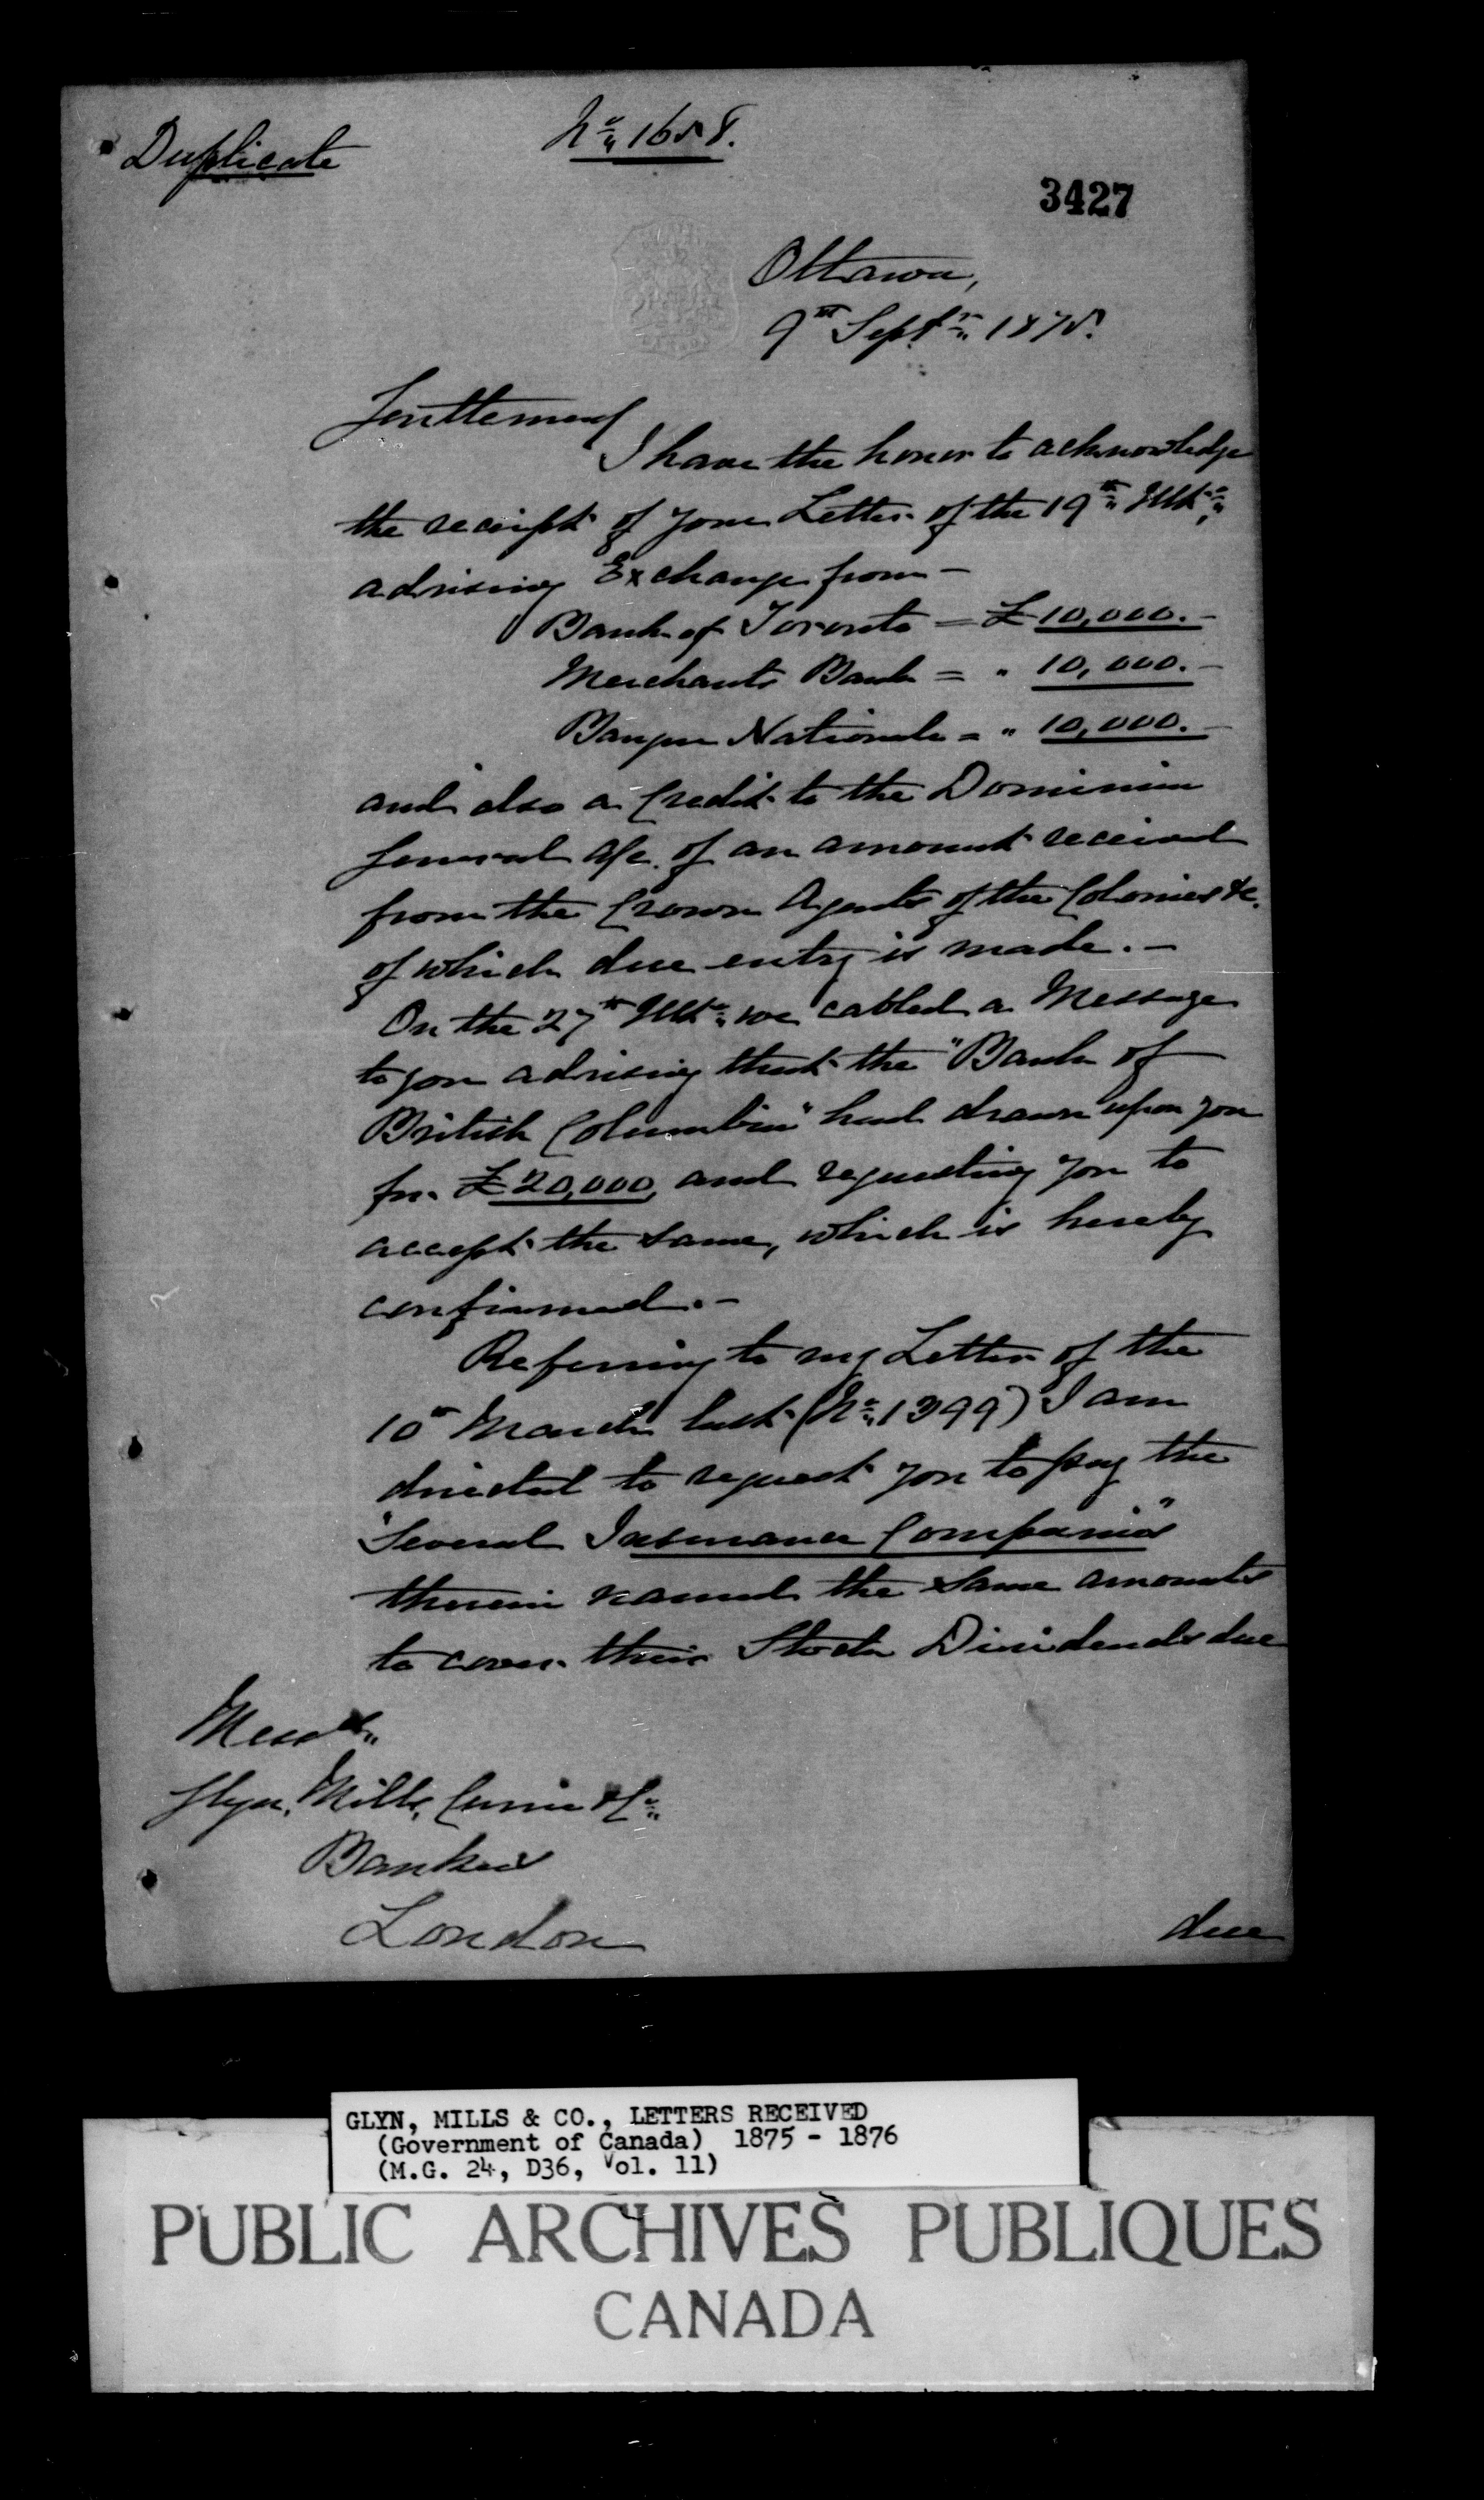 Duplicate
No. 1658.
3427
Ottawa,
9th Septr. 1875.
Gentlemen
I have the honor to acknowledge
the receipt of your Letter of the 19th Ulto.,
advising Exchange from —
Bank of Toronto = £10,000. —
Merchants Bank = " 10,000. —
Banque Nationale = " 10,000. —
and also a Credit to the Dominion
General a/c. of an amount received
from the Crown Agents of the Colonies &c.
of which due entry is made. —
On the 27th Ulto. we cabled a Message
to you advising that the "Bank of
British Columbia" had drawn upon you
for £20,000, and requesting you to
accept the same, which is hereby
confirmed. —
Referring to my Letter of the
10th March last (No. 1399) I am
directed to request you to pay the
"Several Insurance Companies"
therein named the same amounts
to cover their Stock Dividends due
Messrs.
Glyn, Mills, Currie & Co.
Bankers
London
due
GLYN, MILLS & CO., LETTERS RECEIVED
(Government of Canada) 1875 - 1876
(M.G. 24, D36, Vol. 11)
PUBLIC ARCHIVES PUBLIQUES
CANADA